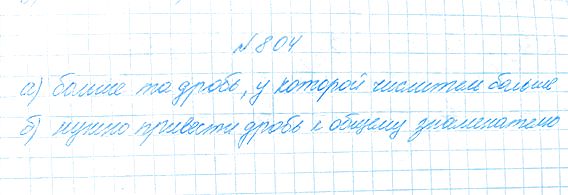 № 804
а) больше та дробь, у которой числитель больше
б) нужно привести дробь к общему знаменателю